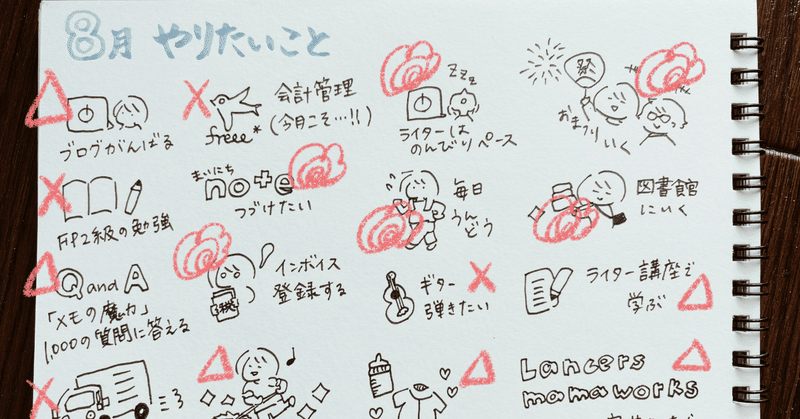 8月 やりたいこと
ブログがんばる
freee*
会計管理
(今月こそ…!!)
zzz
ライターは
のんびりペース
祭
おまつり
いく
FP2級の勉強
まいにち
note
つづけたい
毎日
うんどう
図書館
にいく
Q and A
「メモの魔力」
1,000の質問に答える
税
インボイス
登録する
ギター
弾きたい
ライター講座で
学ぶ
Lancers
mamaworks